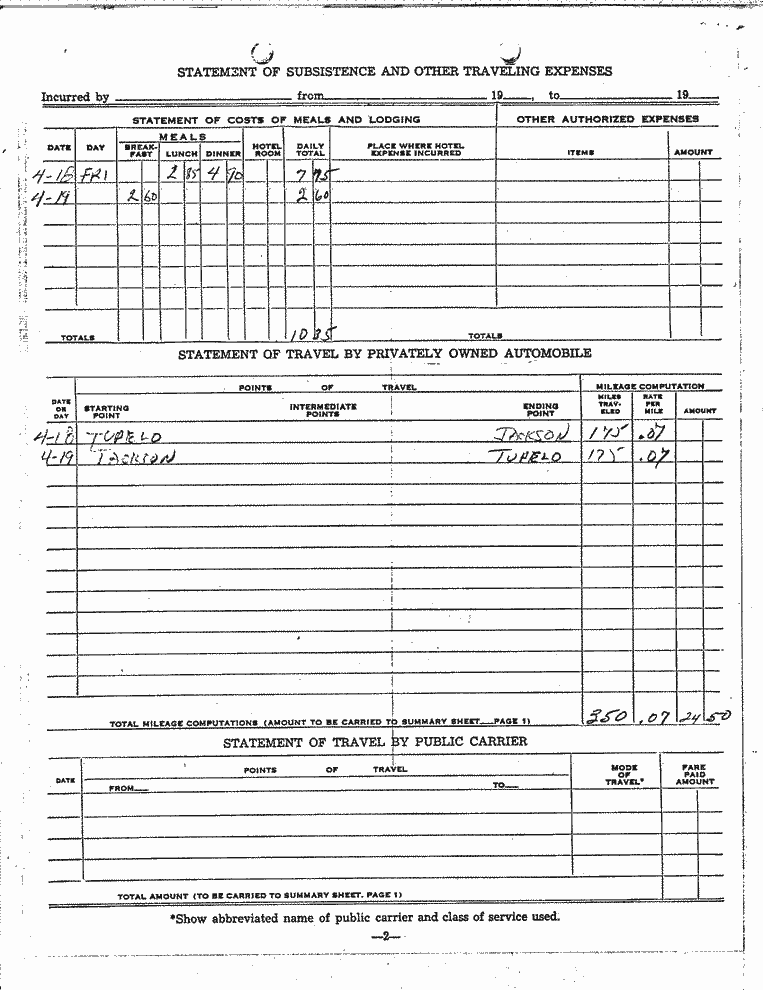 STATEMENT OF SUBSISTENCE AND OTHER TRAVELING EXPENSES
Incurred by from 19 , to 19
STATEMENT OF COSTS OF MEALS AND LODGING OTHER AUTHORIZED EXPENSES
MEALS
DATE DAY BREAK-FAST LUNCH DINNER HOTEL ROOM DAILY TOTAL PLACE WHERE HOTEL EXPENSE INCURRED ITEMS AMOUNT
4-18 FRI 2 85 4 90 7 75
4-19 2 60 2 60
TOTALS 10 35 TOTALS
STATEMENT OF TRAVEL BY PRIVATELY OWNED AUTOMOBILE
POINTS OF TRAVEL MILEAGE COMPUTATION
DATE OR DAY STARTING POINT INTERMEDIATE POINTS ENDING POINT MILES TRAV-ELED RATE PER MILE AMOUNT
4-18 TUPELO JACKSON 175 .07
4-19 JACKSON TUPELO 175 .07
TOTAL MILEAGE COMPUTATIONS (AMOUNT TO BE CARRIED TO SUMMARY SHEET PAGE 1) 350 .07 24 50
STATEMENT OF TRAVEL BY PUBLIC CARRIER
DATE POINTS OF TRAVEL MODE OF TRAVEL* FARE PAID AMOUNT
FROM TO
TOTAL AMOUNT (TO BE CARRIED TO SUMMARY SHEET. PAGE 1)
*Show abbreviated name of public carrier and class of service used.
—2—